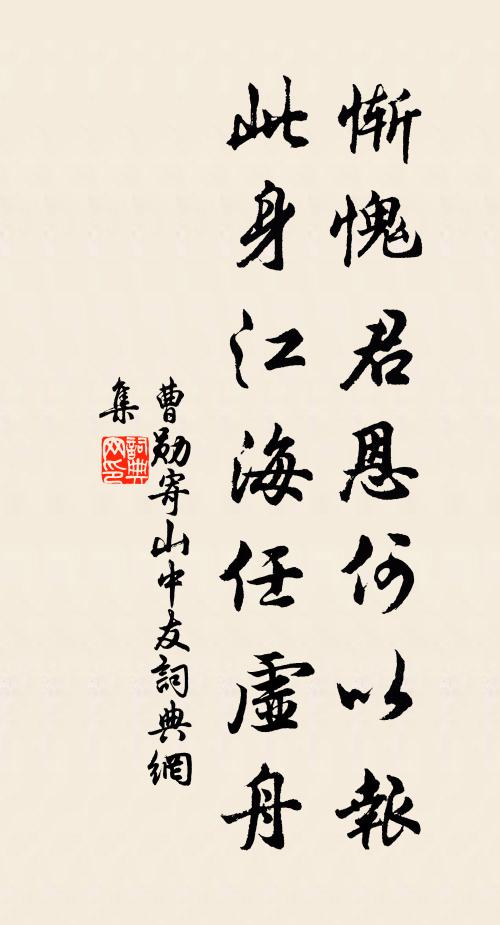 慚愧君恩何以報
此身江海任虛舟
曹勛寄山中友詞典網
集
詞典網印